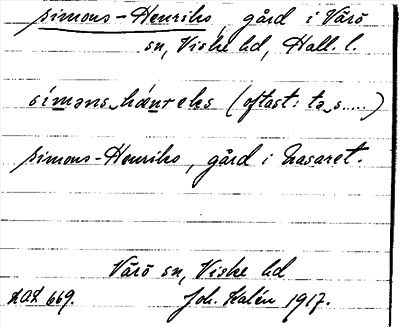 simons-Henriks, gård i Värö
sn, Viske hd, Hall. l.
símǝns‿hán̨reks (oftast: tǝ‿s.....)
simons-Henriks, gård i Nasaret.
Värö sn, Viske hd
LAL 669. Joh. Kalén 1917.